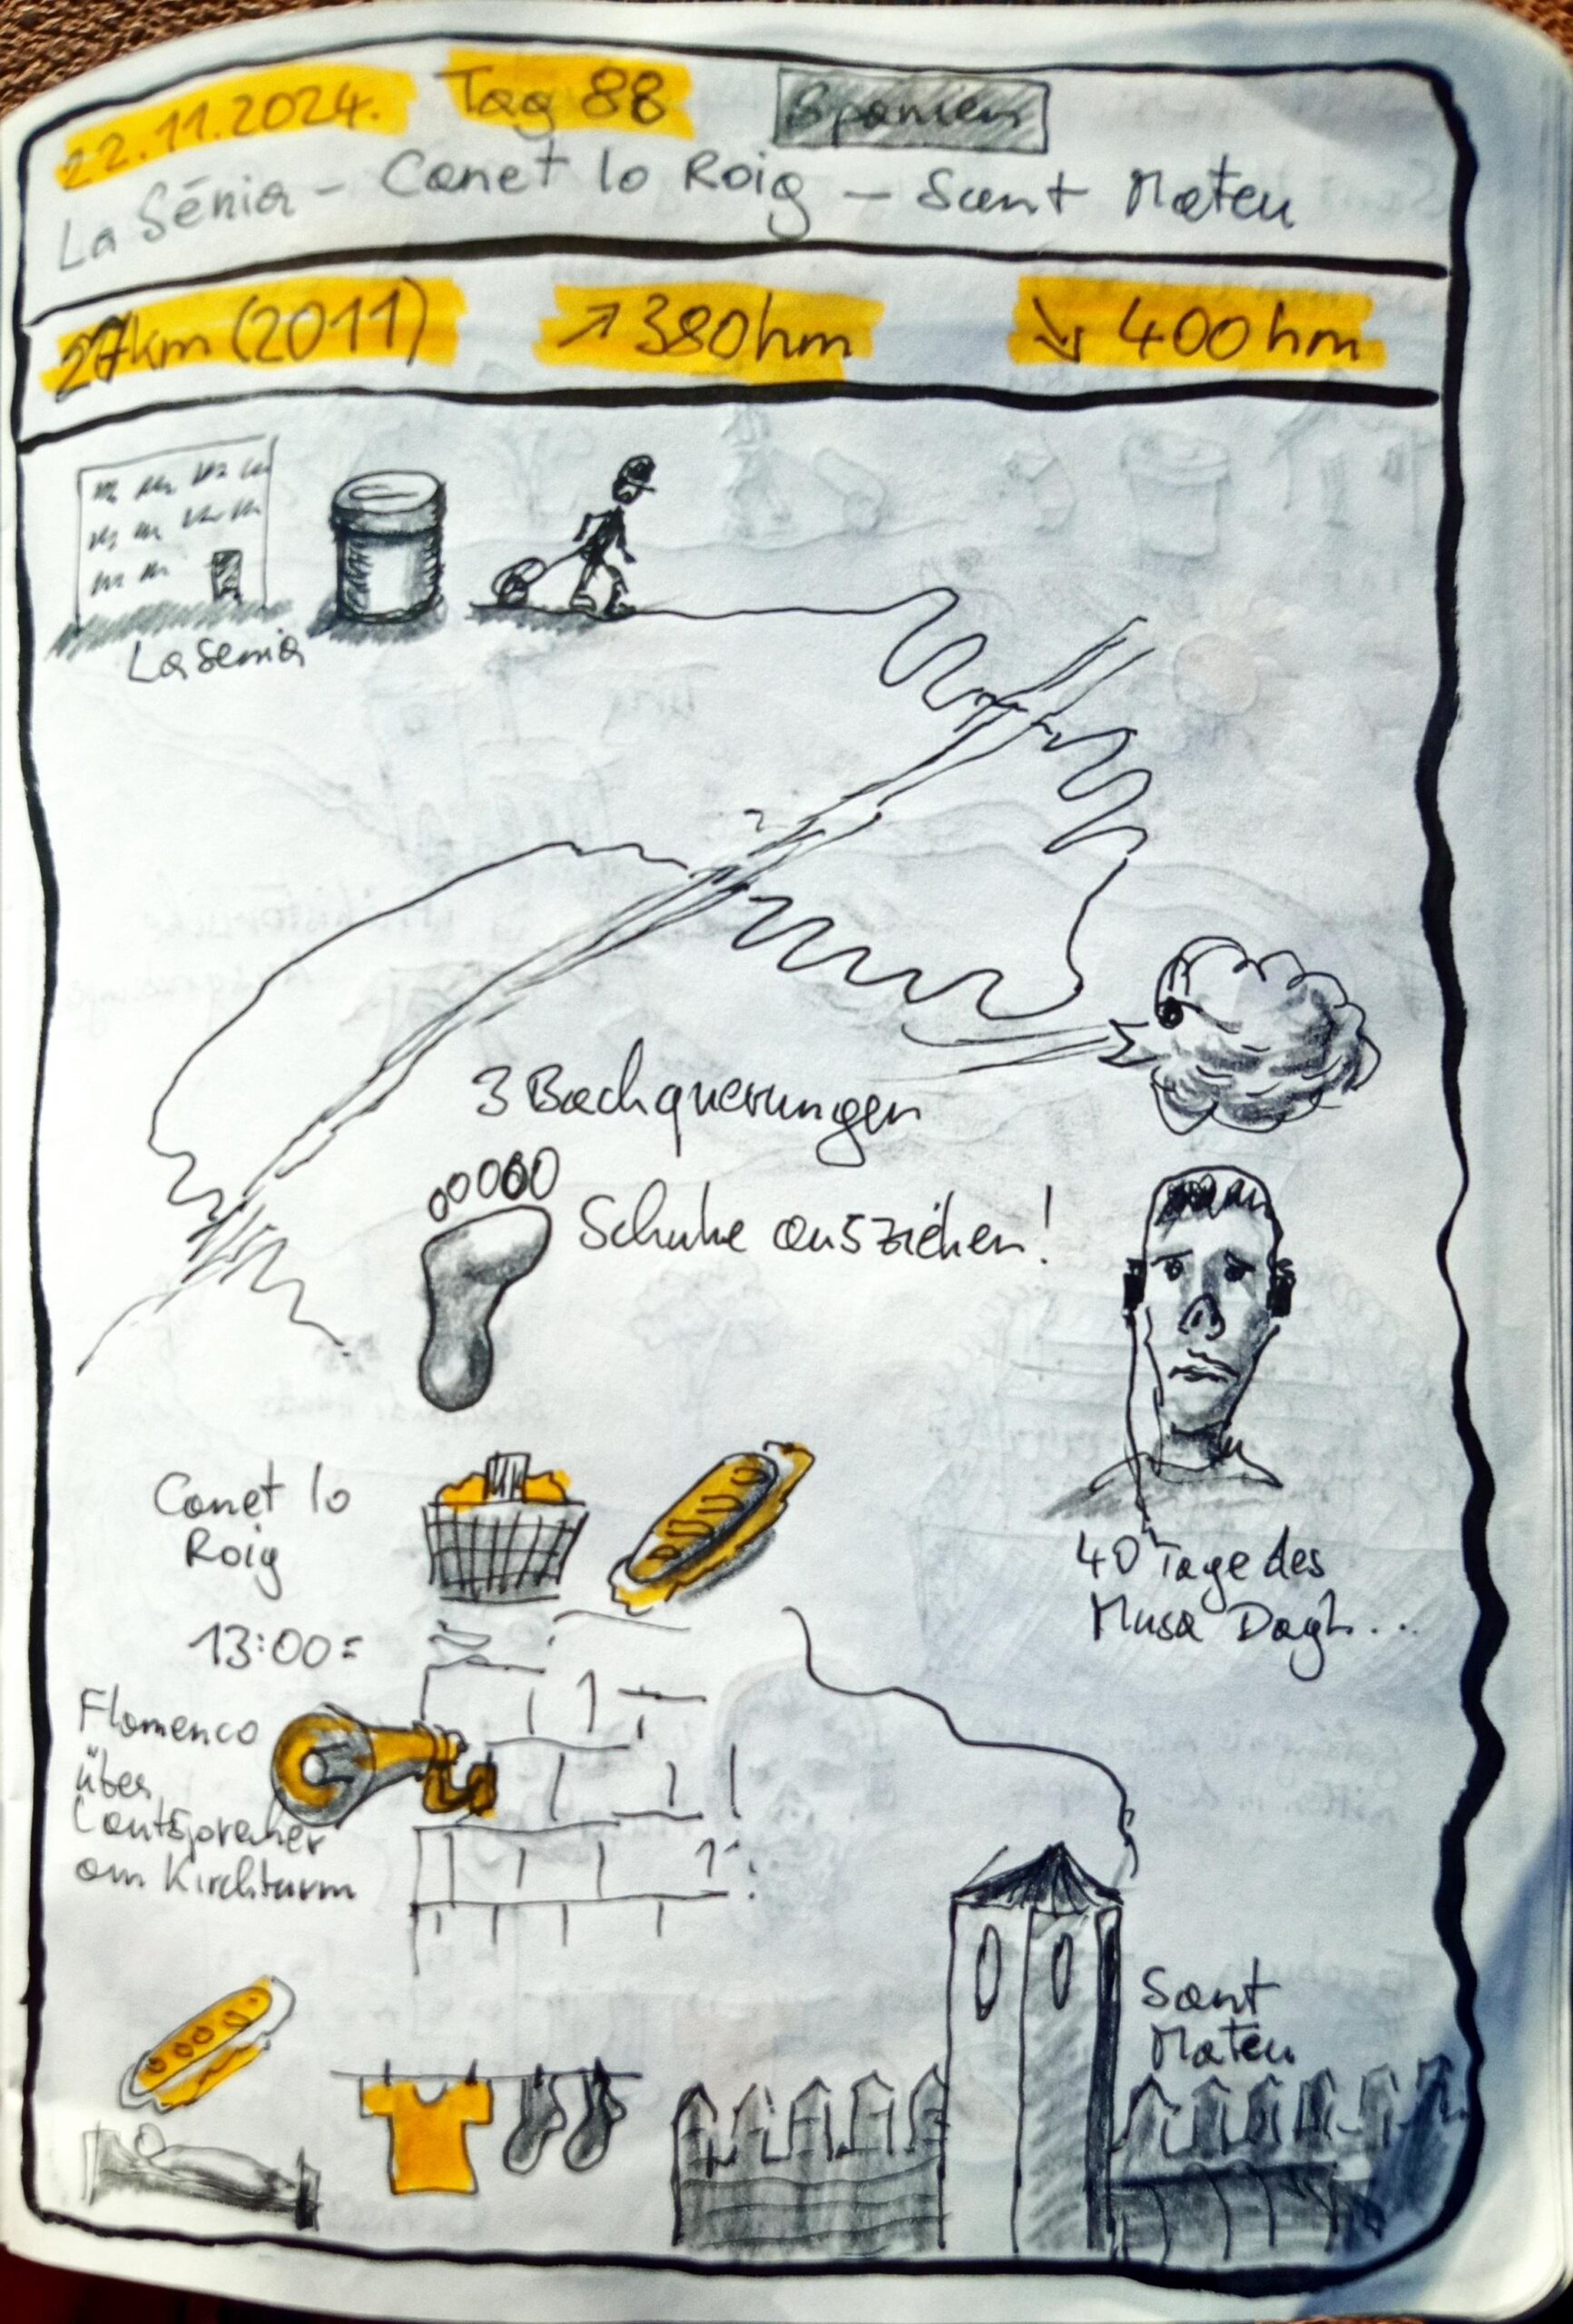 22.11.2024. Tag 88 Spanien
La Sénia - Canet lo Roig - Sant Mateu
27km (2011) ↗ 380hm ↘ 400hm
La Senia
3 Bachquerungen
Schuhe ausziehen!
40 Tage des
Musa Dagh...
Canet lo
Roig
13:00:
Flamenco
über
Lautsprecher
am Kirchturm
Sant
Mateu